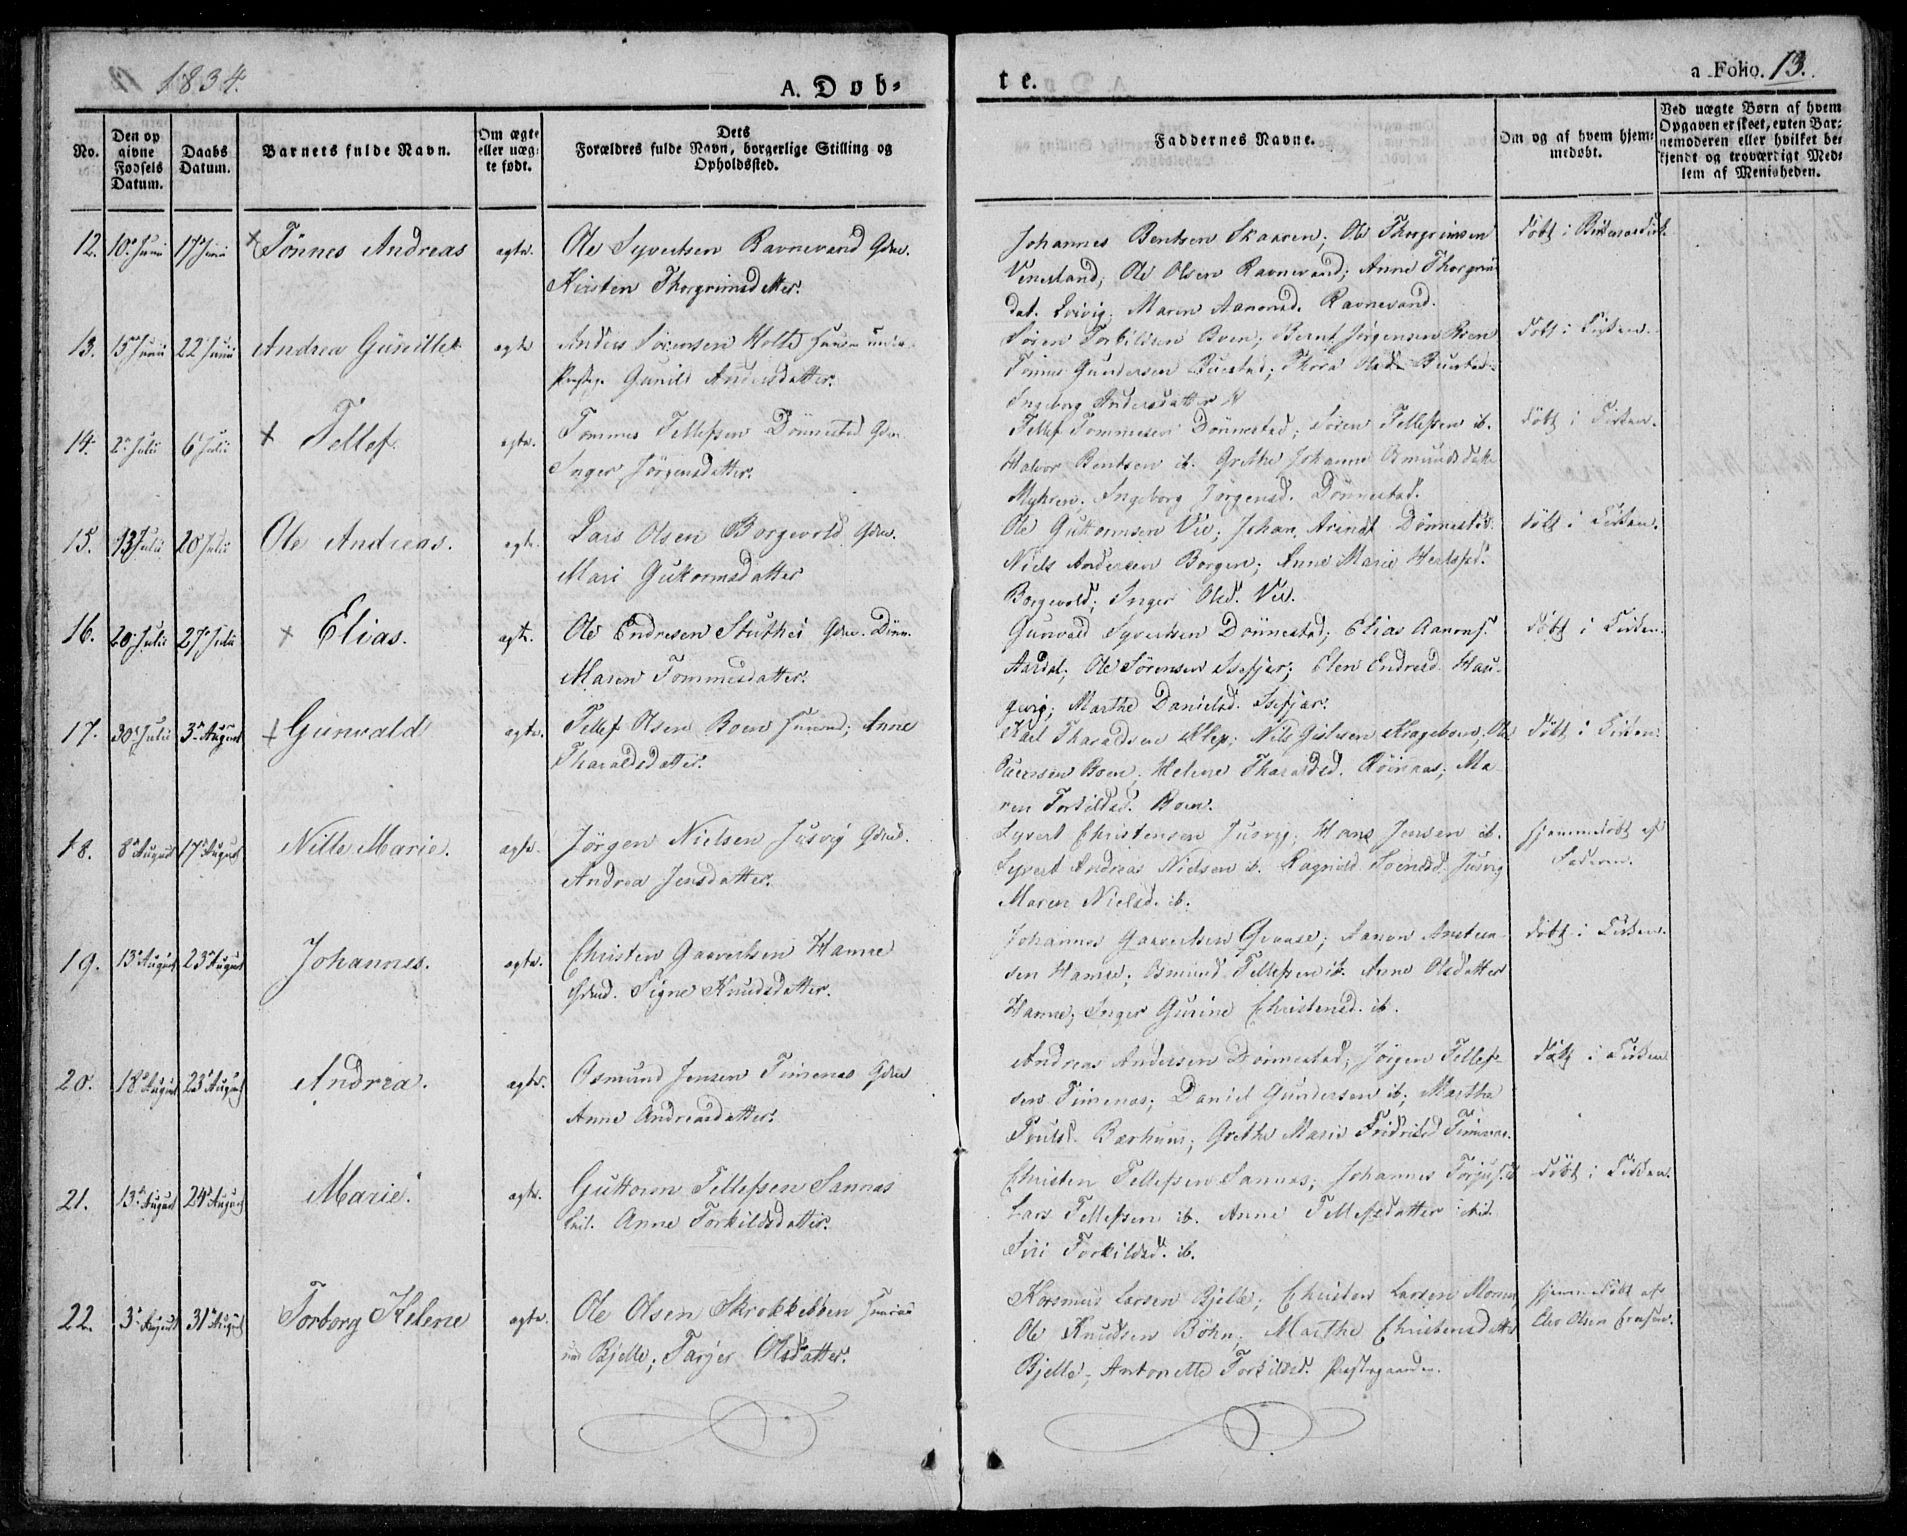 1834.
A. Døb-
te.
a Folio. 13.
No.
Den op
givne
Fødsels
Datum.
Daabs
Datum.
Barnets fulde Navn.
Om ægte
eller uæg-
te født.
Dets
Forældres fulde Navn, borgerlige Stilling og
Opholdssted.
Faddernes Navne.
Om og af hvem hjem-
medøbt.
Ved uægte Børn af hvem
Opgaven er skeet, enten Bar-
nemoderen eller hvilket be-
kjendt og troværdigt Med-
lem af Menigheden.
12. 10 Junii 17 Junii Tønnes Andreas ægte. Ole Syvertsen Ravnevand Gdm.
Kirsten Thorgrimsdatter.
Johannes Bentsen Skaaren; Ole Thorgrimsen
Vennesland; Ole Olsen Ravnevand; Anne Thorgrim
dat. Maren Aanonsd. Ravnevand.
døbt i
13. 15 Junii 22 Junii Andrea Gunille ægte Anders Sørensen Holte
Gunild Andersdatter.
Søren Torkildsen Boen; Bernt Jørgensen Boen
Gundersen Buestad; Thora Olsd. Buestad
Ingeborg Andersdatter
døbt i Kirken.
14. 2 Julii 6 Julii Tellef ægte. Tommes Tellefsen Dønnestad Gdm.
Inger Jørgensdatter.
Tellef Tommesen Dønnestad; Søren Tellefsen ib.
Halvor Bentsen ib. Grethe Johanne Osmundsdatter
Myhren; Ingeborg Jørgensd. Dønnestad.
døbt i Kirken.
15. 13 Julii 20 Julii Ole Andreas. ægte. Lars Olsen Borgevold Gdm.
Mari Guttormsdatter
Ole Guttormsen Vee; Johan Arendt Dønnestad
Niels Andersen Borgen; Anne Marie
Borgevold; Inger Olsd. Vee.
døbt i Kirken.
16. 20 Julii 27 Julii Elias. ægte. Ole Endresen Stuthei Gdm. Dønn.
Maren Tommesdatter.
Gunvald Syvertsen Dønnestad; Elias Aanons.
Aardal; Ole Sørensen Isefjær; Elen Endresd. Hau-
gevig; Marthe Danielsd. Isefjær.
døbt i Kirken.
17. 30 Julii 3 August Gunvald ægte. Tellef Olsen Boen Huusmd; Anne
Tharaldsdatter.
Tharaldsen Klep; Nils Krageboen, Ole
Boen; Helene Tharaldsd. Røinaas; Ma-
ren Torkildsd. Boen.
døbt i Kirken.
18. 8 August 17 August Nille Marie. ægte. Jørgen Nielsen Jusvig Gdmd.
Andrea Jensdatter.
Syvert Christensen Jusvig; Hans Jensen ib.
Syvert Andreas Nielsen ib. Ragnild Svendsd. Jusvig
Maren Nielsd. ib.
hjemmedøbt af
Faderen.
19. 13 August 23 August Johannes. ægte. Christen Gauvertsen Hamre
Gdmd. Signe Knudsdatter.
Johannes Gauvertsen Aanon Arntsen
Hamre; Osmund Tellefsen ib. Anne Olsdatter
Hamre; Inger Gurine Christensd. ib.
døbt i Kirken.
20. 18 August 23 August Andrea. ægte. Osmund Jensen Timenes Gdm
Anne Andreasdatter.
Andreas Andersen Dønnestad; Jørgen Tellef-
sen Timenes; Daniel Gundersen ib; Marthe
Poulsd. Grethe Marie Fridriksd Timenes.
døbt i Kirken
21. 13 August 24 August Marie. ægte. Guttorm Tellefsen Sannes
Leil. Anne Torkildsdatter.
Christen Tellefsen Sannes; Johannes Torjus. ib
Lars Tellefsen ib. Anne Tellefsdatter ib.
Siri Torkildsd. ib.
døbt i Kirken.
22. 3 August 31 August Torborg Helene ægte. Ole Olsen Skrokkebben
Bjelle; Tarjer Olsdatter.
Rasmus Larsen Bjelle; Christen Larsen Moene,
Ole Knudsen Bøhn; Marthe Christensdatter
Bjelle; Antonette Torkildsd. Præstegaarden.
hjemmedøbt af
Ole Olsen